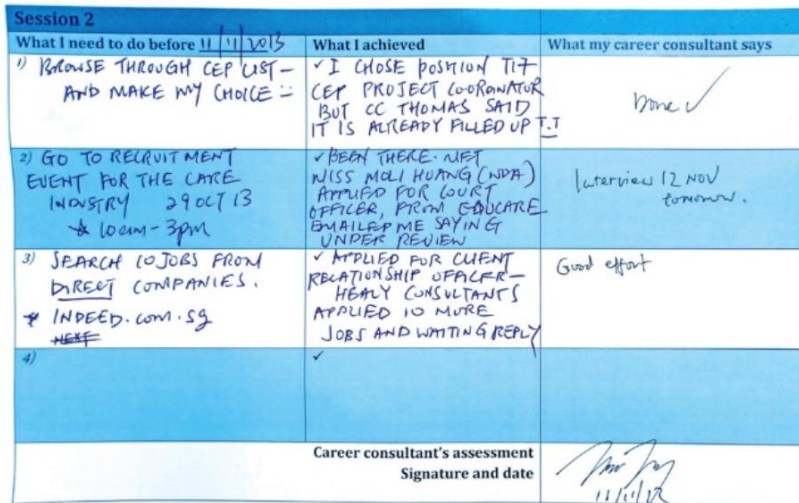 Session 2
What I need to do before 11/11/2013
What I achieved
What my career consultant says
1) BROWSE THROUGH CEP LIST –
AND MAKE MY CHOICE :-
✓ I CHOSE POSITION T17
CEP PROJECT COORDINATOR
BUT CC THOMAS SAID
IT IS ALREADY FILLED UP T.T
Done ✓
2) GO TO RECRUITMENT
EVENT FOR THE CARE
INDUSTRY 29 OCT 13
* 10am - 3pm
✓ BEEN THERE. MET
MISS MOLI HUANG (NDA)
APPLIED FOR COURT
OFFICER, FROM EDUCARE
EMAILED ME SAYING
UNDER REVIEW
Interview 12 NOV
tomorrow.
3) SEARCH 10 JOBS FROM
DIRECT COMPANIES.
* INDEED.com.sg
✓ APPLIED FOR CLIENT
RELATIONSHIP OFFICER –
HEALY CONSULTANTS
APPLIED 10 MORE
JOBS AND WAITING REPLY
Good effort
4)
✓
Career consultant's assessment
Signature and date